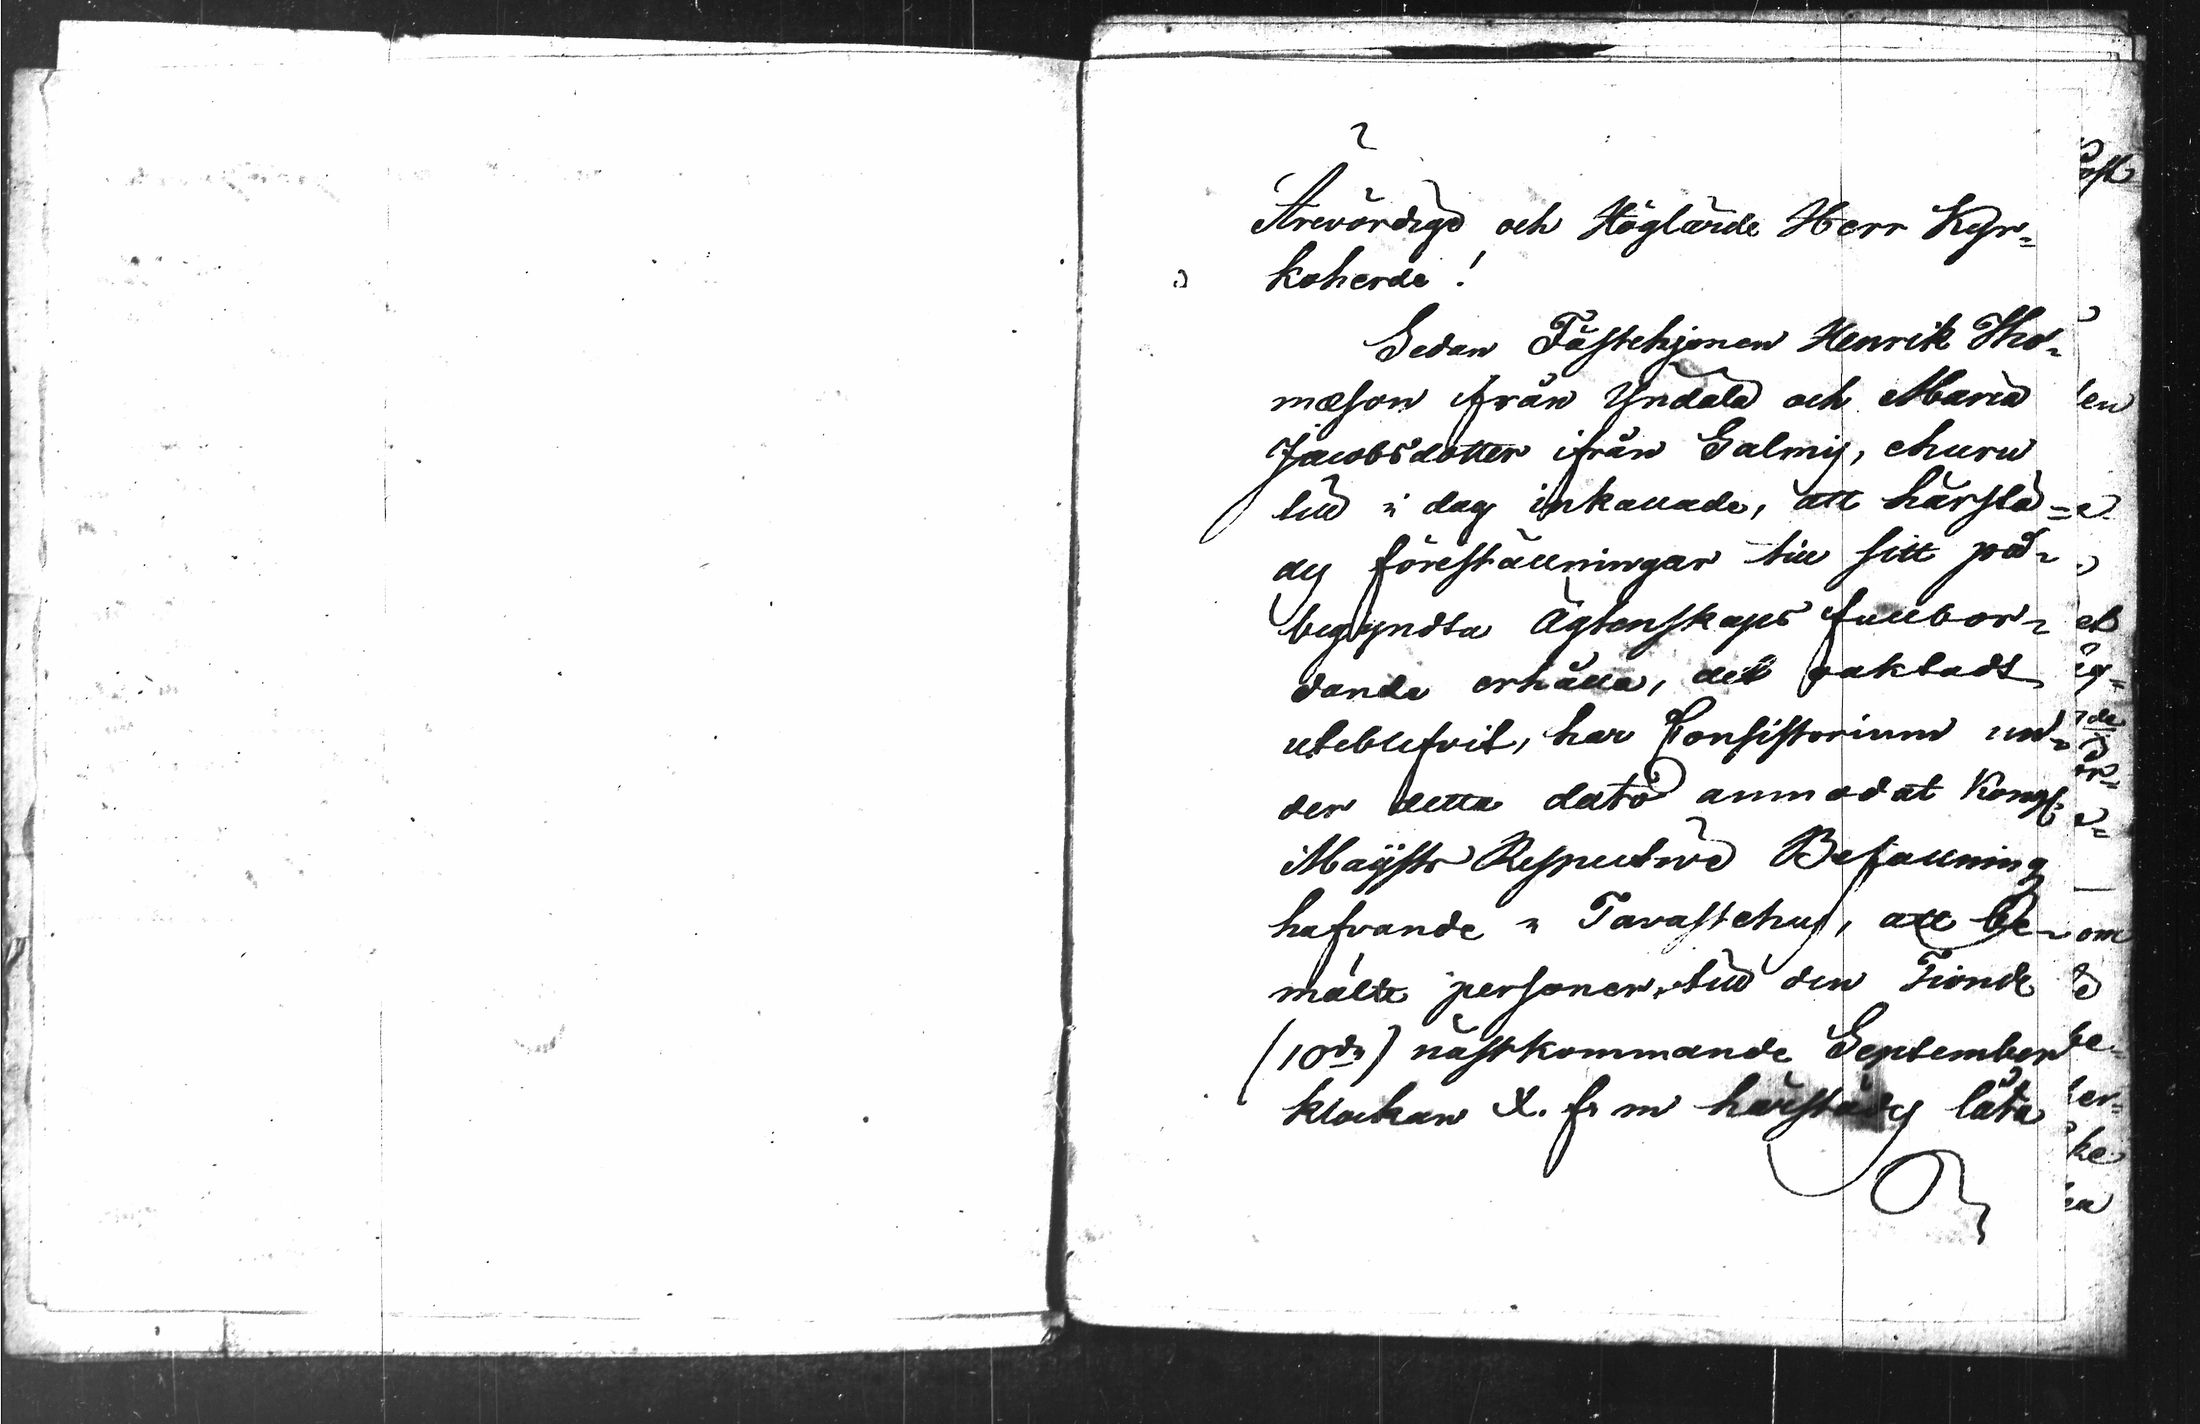 Ärevördige och Höglärde Herr Kyr=
koherde!
Sedan Fästehjonen Henrik Tho=
mæson ifrån Yndälä och Maria
Jacobsdotter ifrån Salmis, ehuru
till i dag inkallade, att härstä=
des föreställningar till sitt på=
begyndta Ägtenskaps fullbor=
dande erhålla, det oaktadt
uteblifvit, har Consistorium un=
der detta dato anmodat Kongl:
Maijsts Respective Befallning
hafvande i Tavastehus, att be=
mälte personer till den Tionde
(10de) nästkommande September
klockan X. f. m härstädes låta